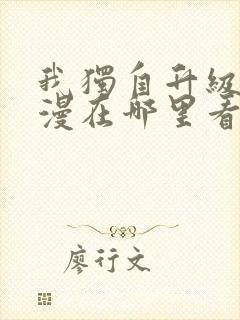 我獨自升級
漫在哪里看
廖行文